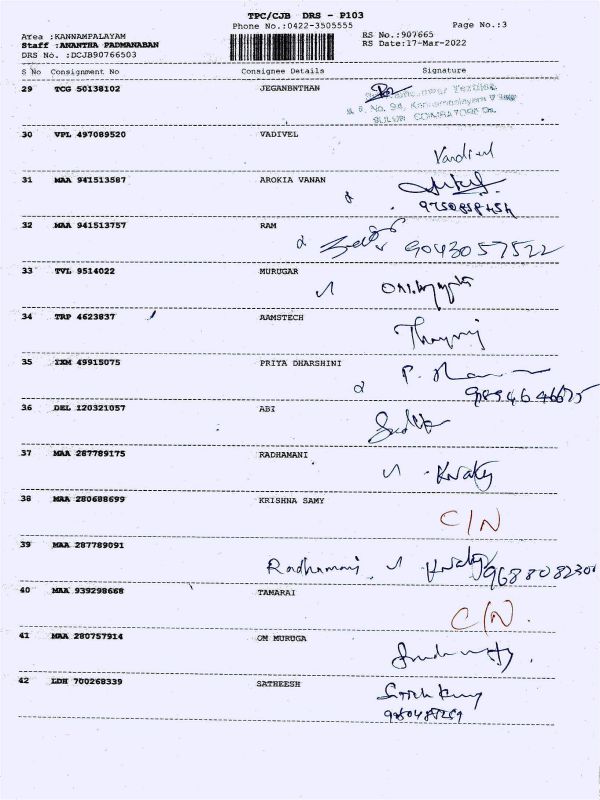 TPC/CJB DRS - P103
Phone No.:0422-3505555
Page No.:3
Area :KANNAMPALAYAM
RS No.:907665
Staff :ANANTHA PADMANABAN
RS Date:17-Mar-2022
DRS No. :DCJB90766503
S No Consignment No Consignee Details Signature
29 TCG 50138102 JEGANBNTHAN
SULUR COIMBATORE
30 VPL 497089520 VADIVEL
Vardivel
31 MAA 941513587 AROKIA VANAN
32 MAA 941513757 RAM
9043057522
33 TVL 9514022 MURUGAR
34 TRP 4623837 AAMSTECH
35 IXM 49915075 PRIYA DHARSHINI
36 DEL 120321057 ABI
37 MAA 287789175 RADHAMANI
38 MAA 280688699 KRISHNA SAMY
C/N
39 MAA 287789091
Radhamani
40 MAA 939298668 TAMARAI
C/N.
41 MAA 280757914 OM MURUGA
42 LDH 700268339 SATHEESH